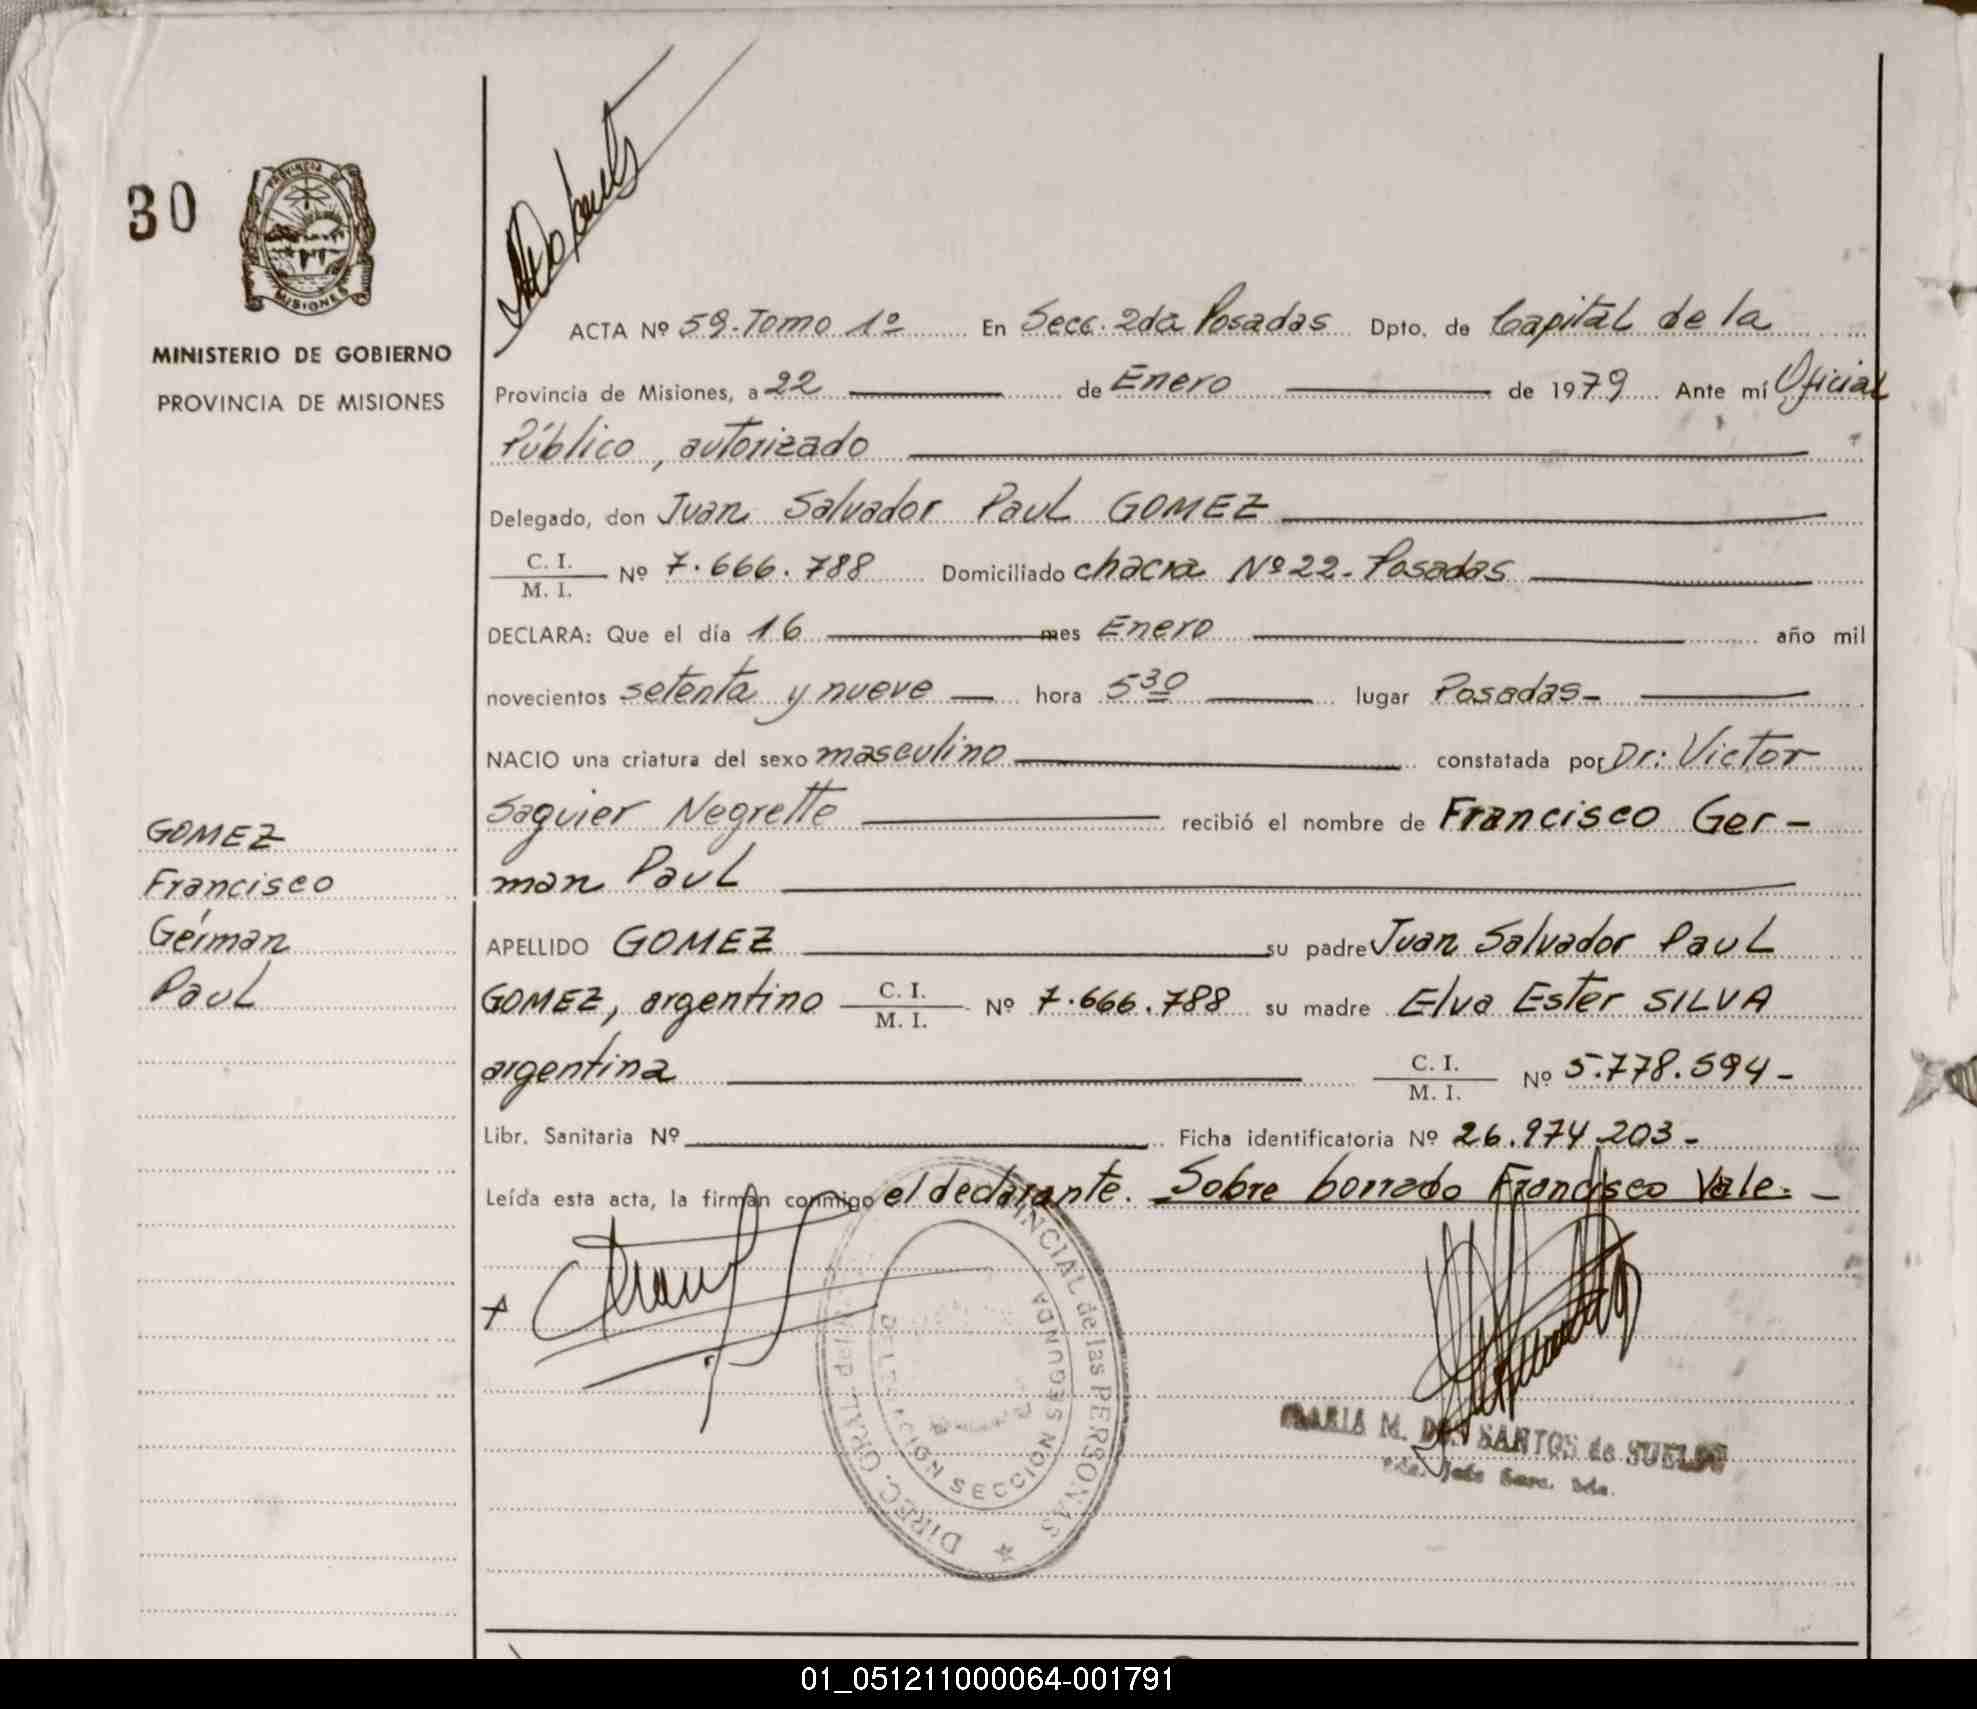 30
PROVINCIA DE
MISIONES
MINISTERIO DE GOBIERNO
PROVINCIA DE MISIONES
ACTA Nº 59-Tomo 1º En Secc. 2da Posadas Dpto. de Capital de la
Provincia de Misiones, a 22 de Enero de 1979 Ante mí Oficial
Público, autorizado
Delegado, don Juan Salvador Paul GOMEZ
C. I.
M. I. Nº 7.666.788 Domiciliado chacra Nº 22- Posadas
DECLARA: Que el día 16 mes Enero año mil
novecientos setenta y nueve hora 5 30 lugar Posadas-
NACIO una criatura del sexo masculino constatada por Dr: Victor
Saguier Negrette recibió el nombre de Francisco Ger-
man Paul
APELLIDO GOMEZ su padre Juan Salvador Paul
GOMEZ, argentino C. I. M. I. Nº 7.666.788 su madre Elva Ester SILVA
argentina C. I. M. I. Nº 5.778.594-
Libr. Sanitaria Nº Ficha identificatoria Nº 26.974.203-
Leída esta acta, la firman conmigo el declarante. Sobre borrado Francisco Vale.-
GOMEZ
Francisco
Gérman
Paul
DIREC. GRAL. PROVINCIAL de las PERSONAS
DELEGACIÓN SECCION SEGUNDA
MARIA M. DOS SANTOS de SUELDO
01_051211000064-001791